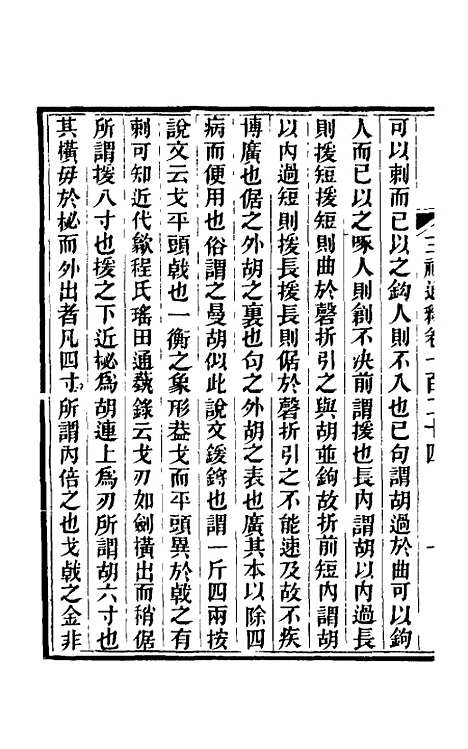 三禮通釋卷一百二十四
可以刺而已以之鈎人則不入也已句謂胡過於曲可以鉤
人而已以之啄人則創不決前謂援也長內謂胡以內過長
則援短援短則曲於磬折引之與胡並鉤故折前短內謂胡
以內過短則援長援長則倨於磬折引之不能速及故不疾
博廣也倨之外胡之裏也句之外胡之表也廣其本以除四
病而便用也俗謂之曼胡似此說文鍰鋝也謂一斤四兩按
說文云戈平頭戟也一衡之象形葢戈而平頭異於戟之有
刺可知近代歙程氏瑤田通藝錄云戈刃如劍橫出而稍倨
所謂援八寸也援之下近柲爲胡連上爲刃所謂胡六寸也
其橫毋於柲而外出者凡四寸所謂內倍之也戈戟之金非